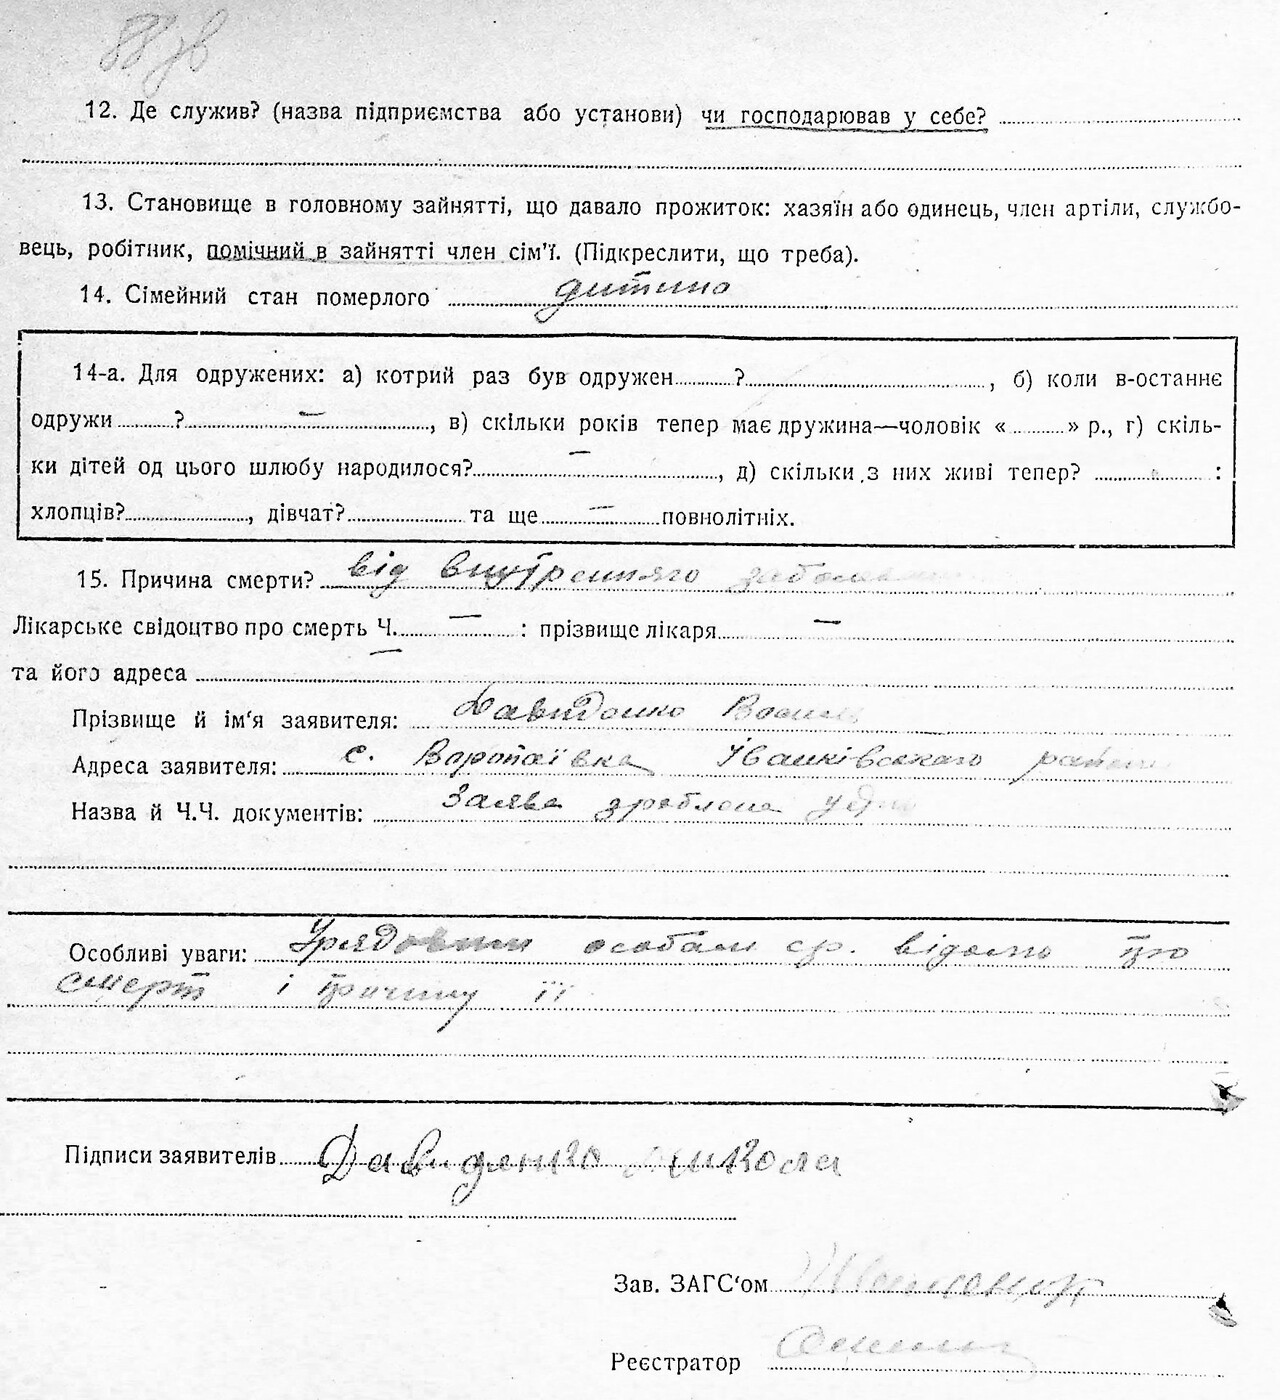 88 зв
12. Де служив? (назва підприємства або установи) чи господарював у себе?
13. Становище в головному зайнятті, що давало прожиток: хазяїн або одинець, член артіли, службо-
вець, робітник, помічний в зайнятті член сім'ї. (Підкреслити, що треба).
14. Сімейний стан померлого дитина
14-а. Для одружених: а) котрий раз був одружен ? , б) коли в-останнє
одружи ? — , в) скільки років тепер має дружина—чоловік « » р., г) скіль-
ки дітей од цього шлюбу народилося? — , д) скільки з них живі тепер? :
хлопців? , дівчат? та ще — повнолітніх.
15. Причина смерти? від внутренняго заболев
Лікарське свідоцтво про смерть Ч. — : прізвище лікаря —
та його адреса —
Прізвище й ім'я заявителя: Давиденко
Адреса заявителя: с. Воропаївка Іванківського района
Назва й Ч.Ч. документів: Заява зроблена
Особливі уваги: Урядовим особам ср. відомо про
смерт і причину її
Підписи заявителів Давиденко Микола
Зав. ЗАГС'ом
Реєстратор